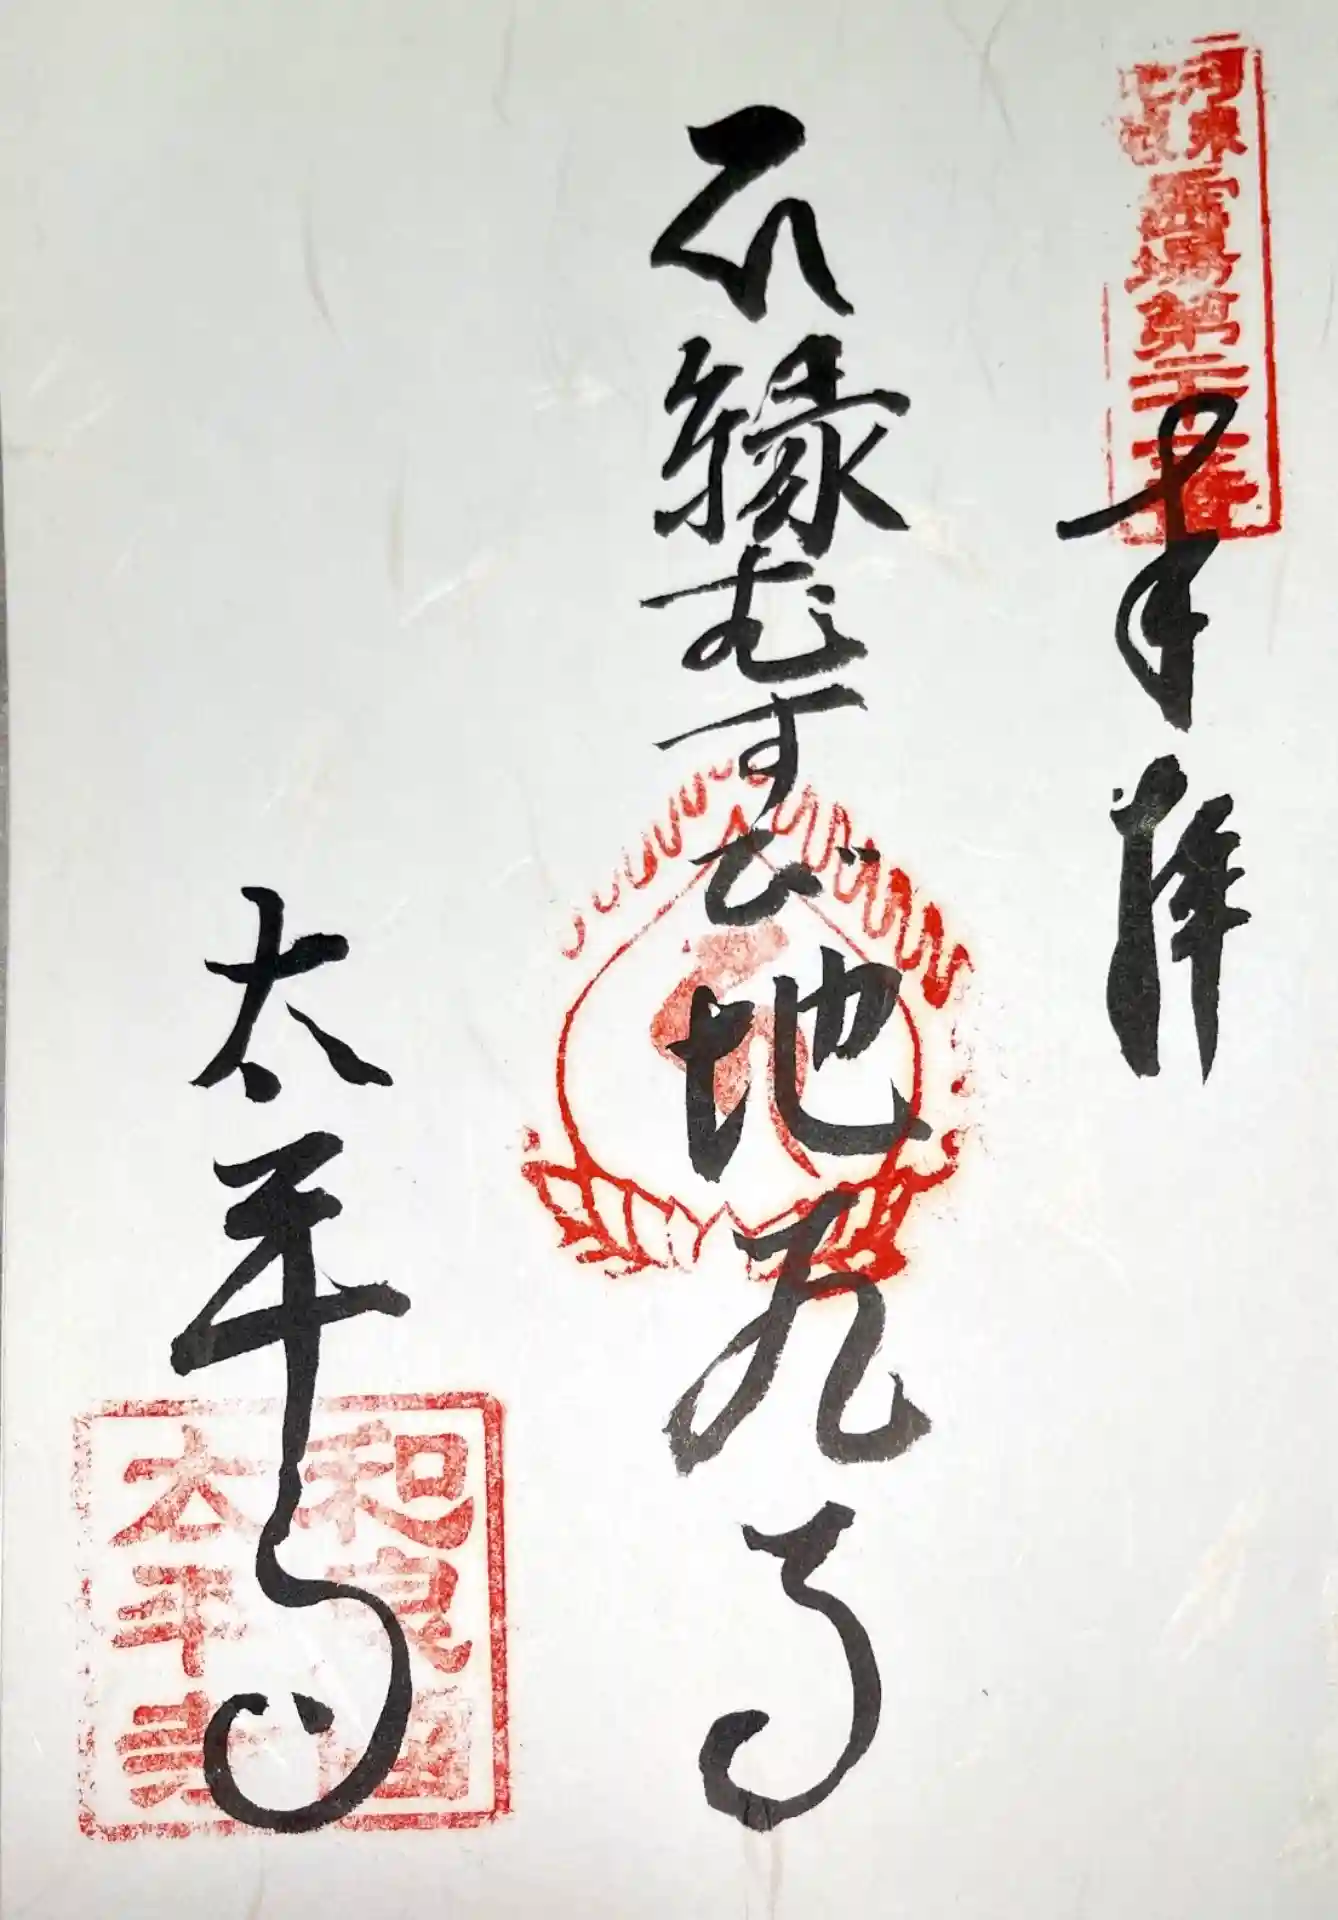 霊場第二十
奉拝
縁むすび地蔵尊
太平寺
和泉国
太平寺